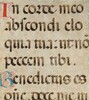 In corde meo
abscondi elo
quia tua: ut nō
peccem tibi.
Benedictus es